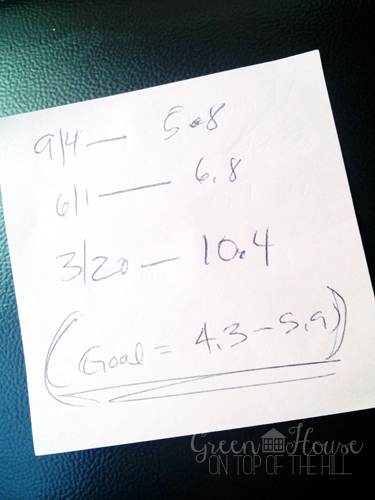 9/4 — 5.8
6/1 — 6.8
3/20 — 10.4
(Goal = 4.3 - 5.9)
Green House
ON TOP OF THE HILL